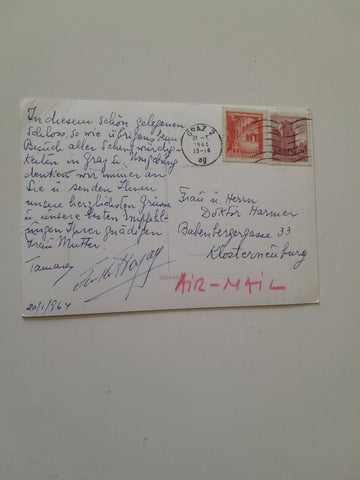 In diesem schön gelegenen
Schloss, so wie übrigens beim
Besuch aller Sehenswürdig-
keiten in Graz u. Umgebung
denken wir immer an
Sie u senden Ihnen
unsere herzlichsten Grüsse
u unsere besten Empfehl-
ungen Ihrer gnädigen
Frau Mutter.
Tamara
20/I/964
GRAZ 2
21.-1.
1964
13-14
ag
Frau u. Herrn
Doktor Harmer
Babenbergergasse 33
Klosterneuburg
AIR-MAIL